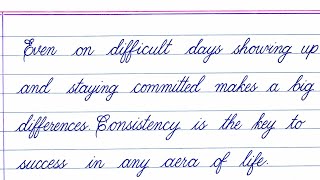 Even on difficult days showing up
and staying committed makes a big
differences. Consistency is the key to
success in any aera of life.